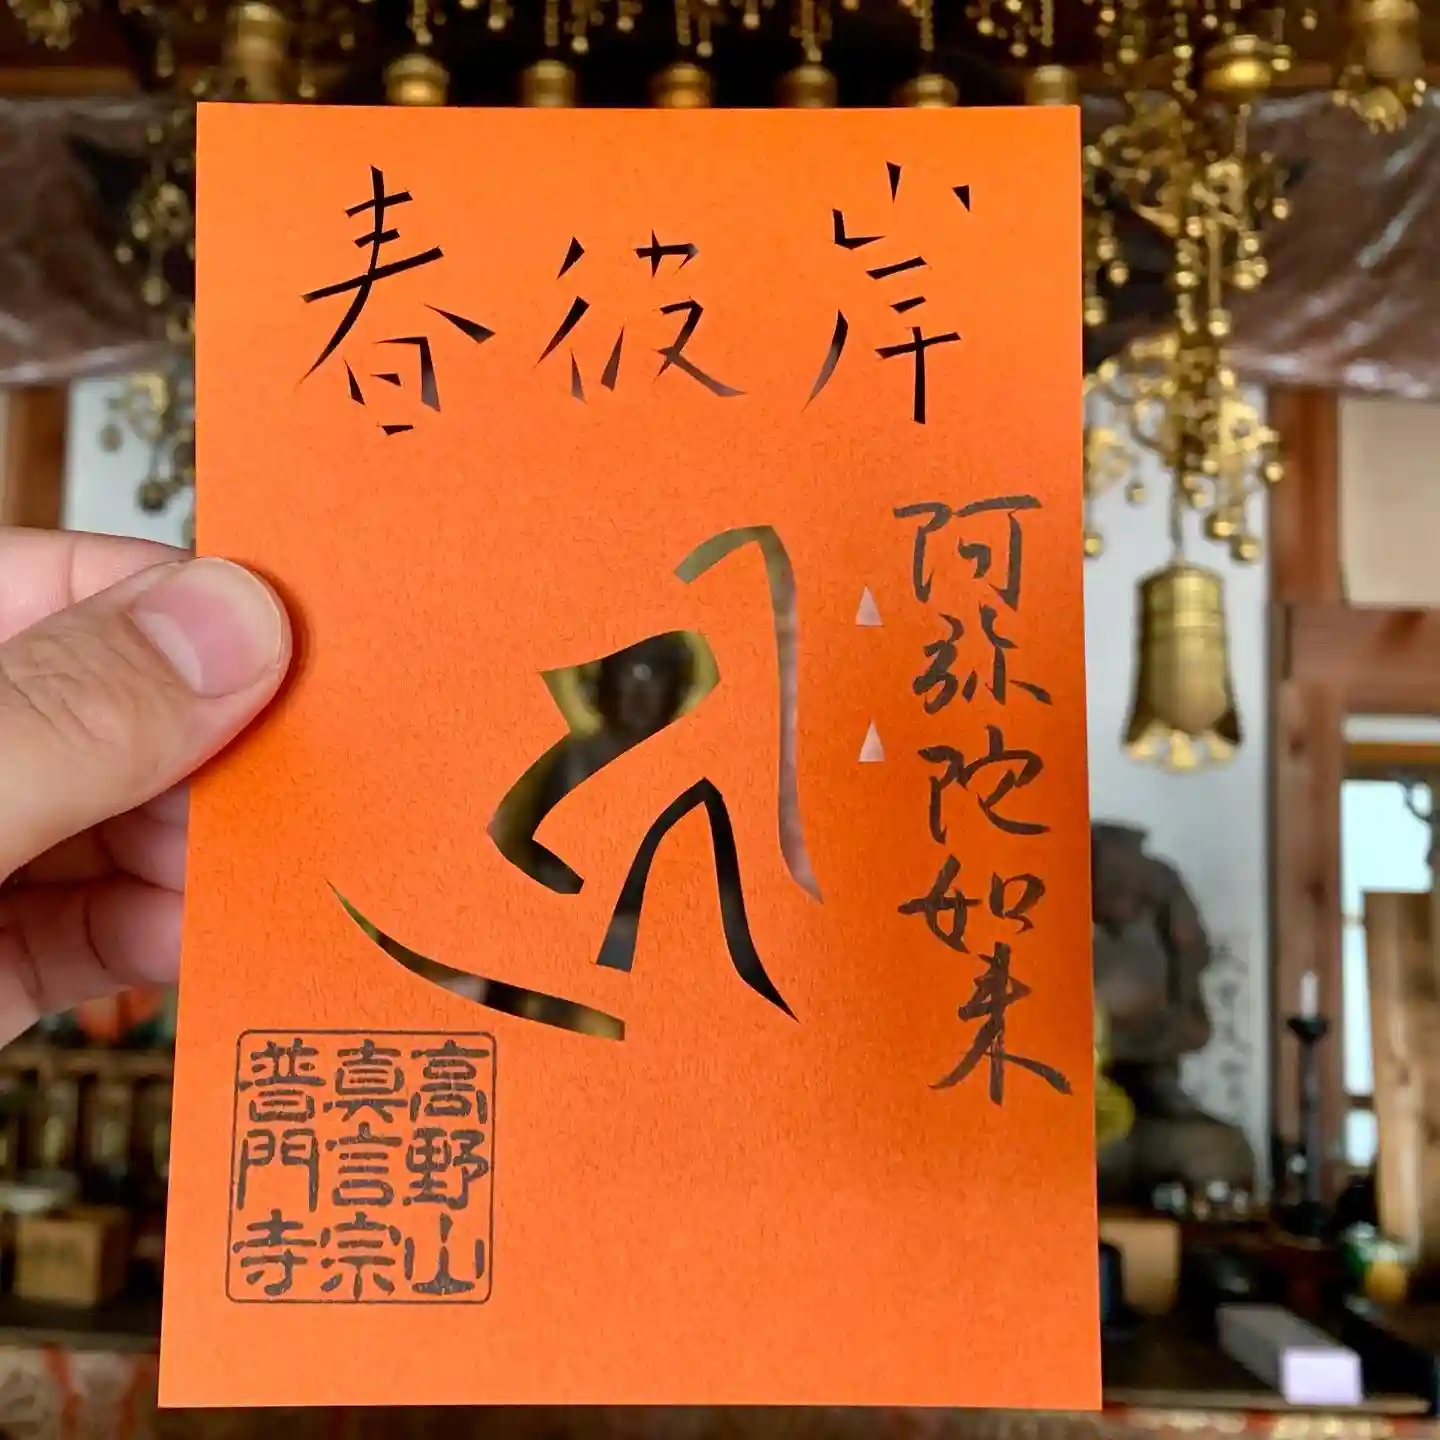 春彼岸
阿弥陀如来
𑖮𑖿𑖨𑖱𑖾
高野山
真言宗
普門寺